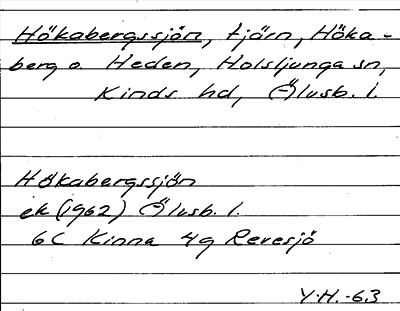 Hökabergssjön, tjärn, Höka-
berg o. Heden, Holsljunga sn,
Kinds hd, Älvsb. l.
Hökabergssjön
ek (1962) Älvsb. l.
6C Kinna 4g Revesjö
Y.H.-63